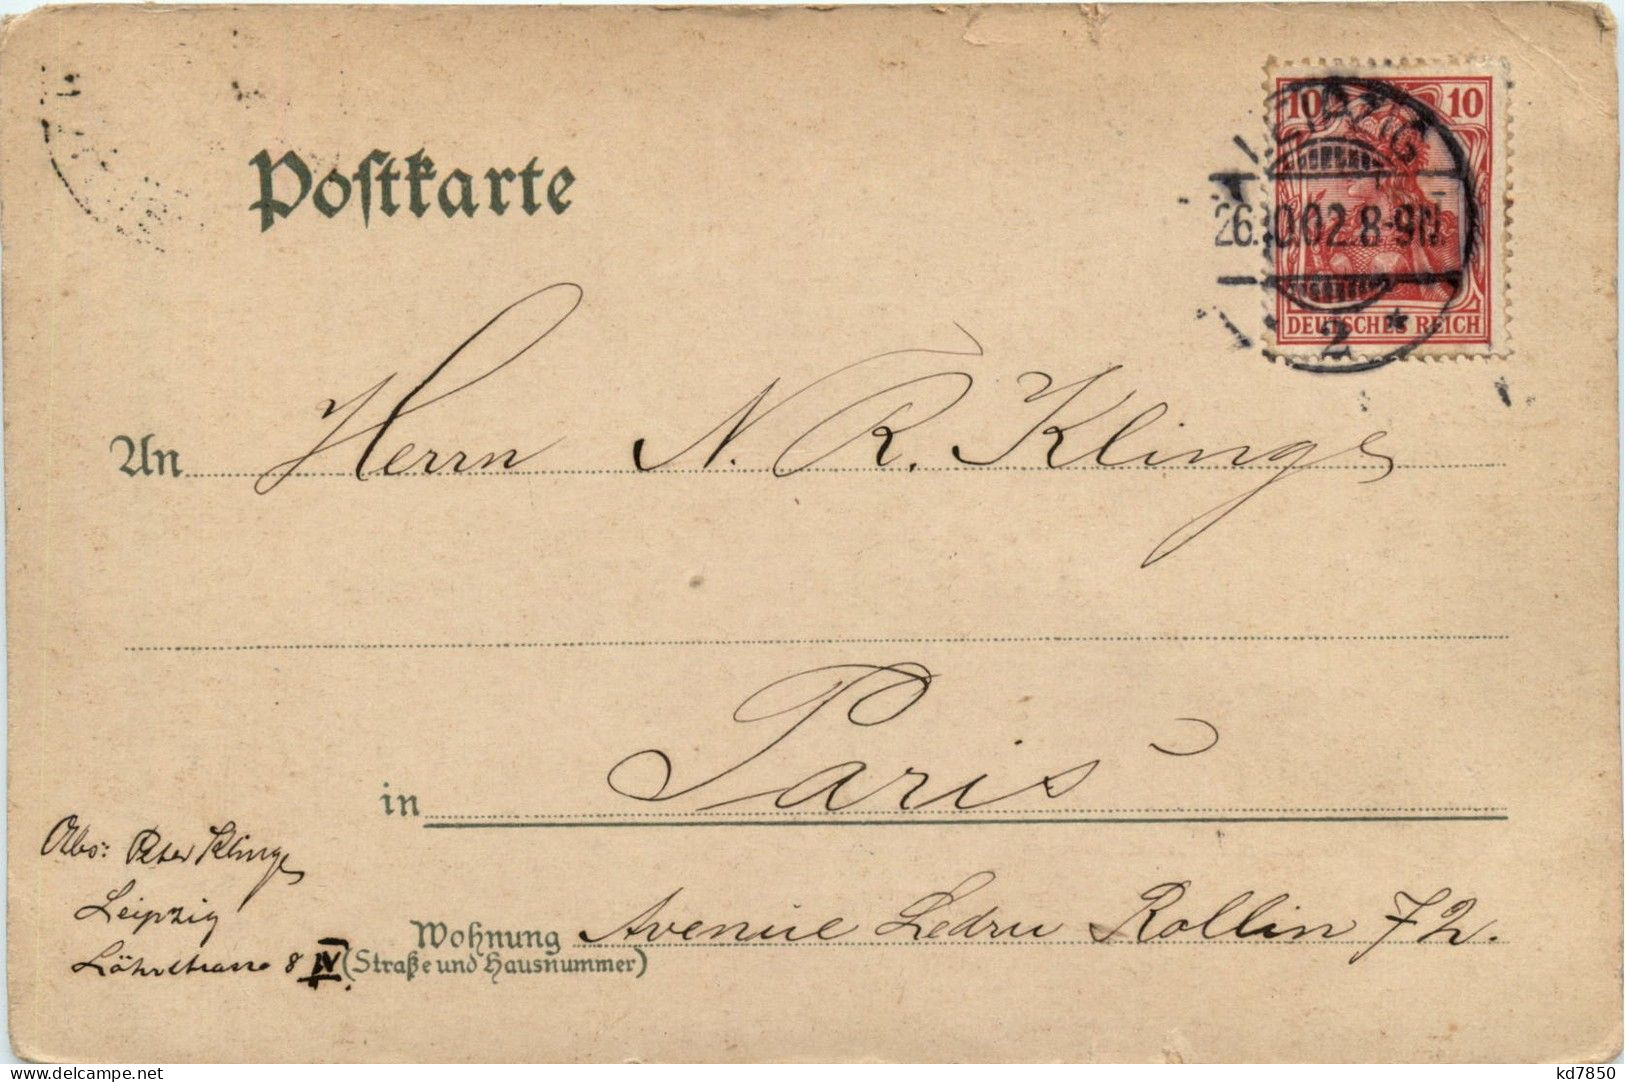 Postkarte
10 10
LEIPZIG
26.10.02.8-9N.
DEUTSCHES REICH
2 *
An Herrn N. R. Klinge
in Paris
Abs: Peter Klinge
Leipzig
Löhrstrasse 8 IV.
Wohnung Avenue Ledru Rollin 72.
(Straße und Hausnummer)
kd7850